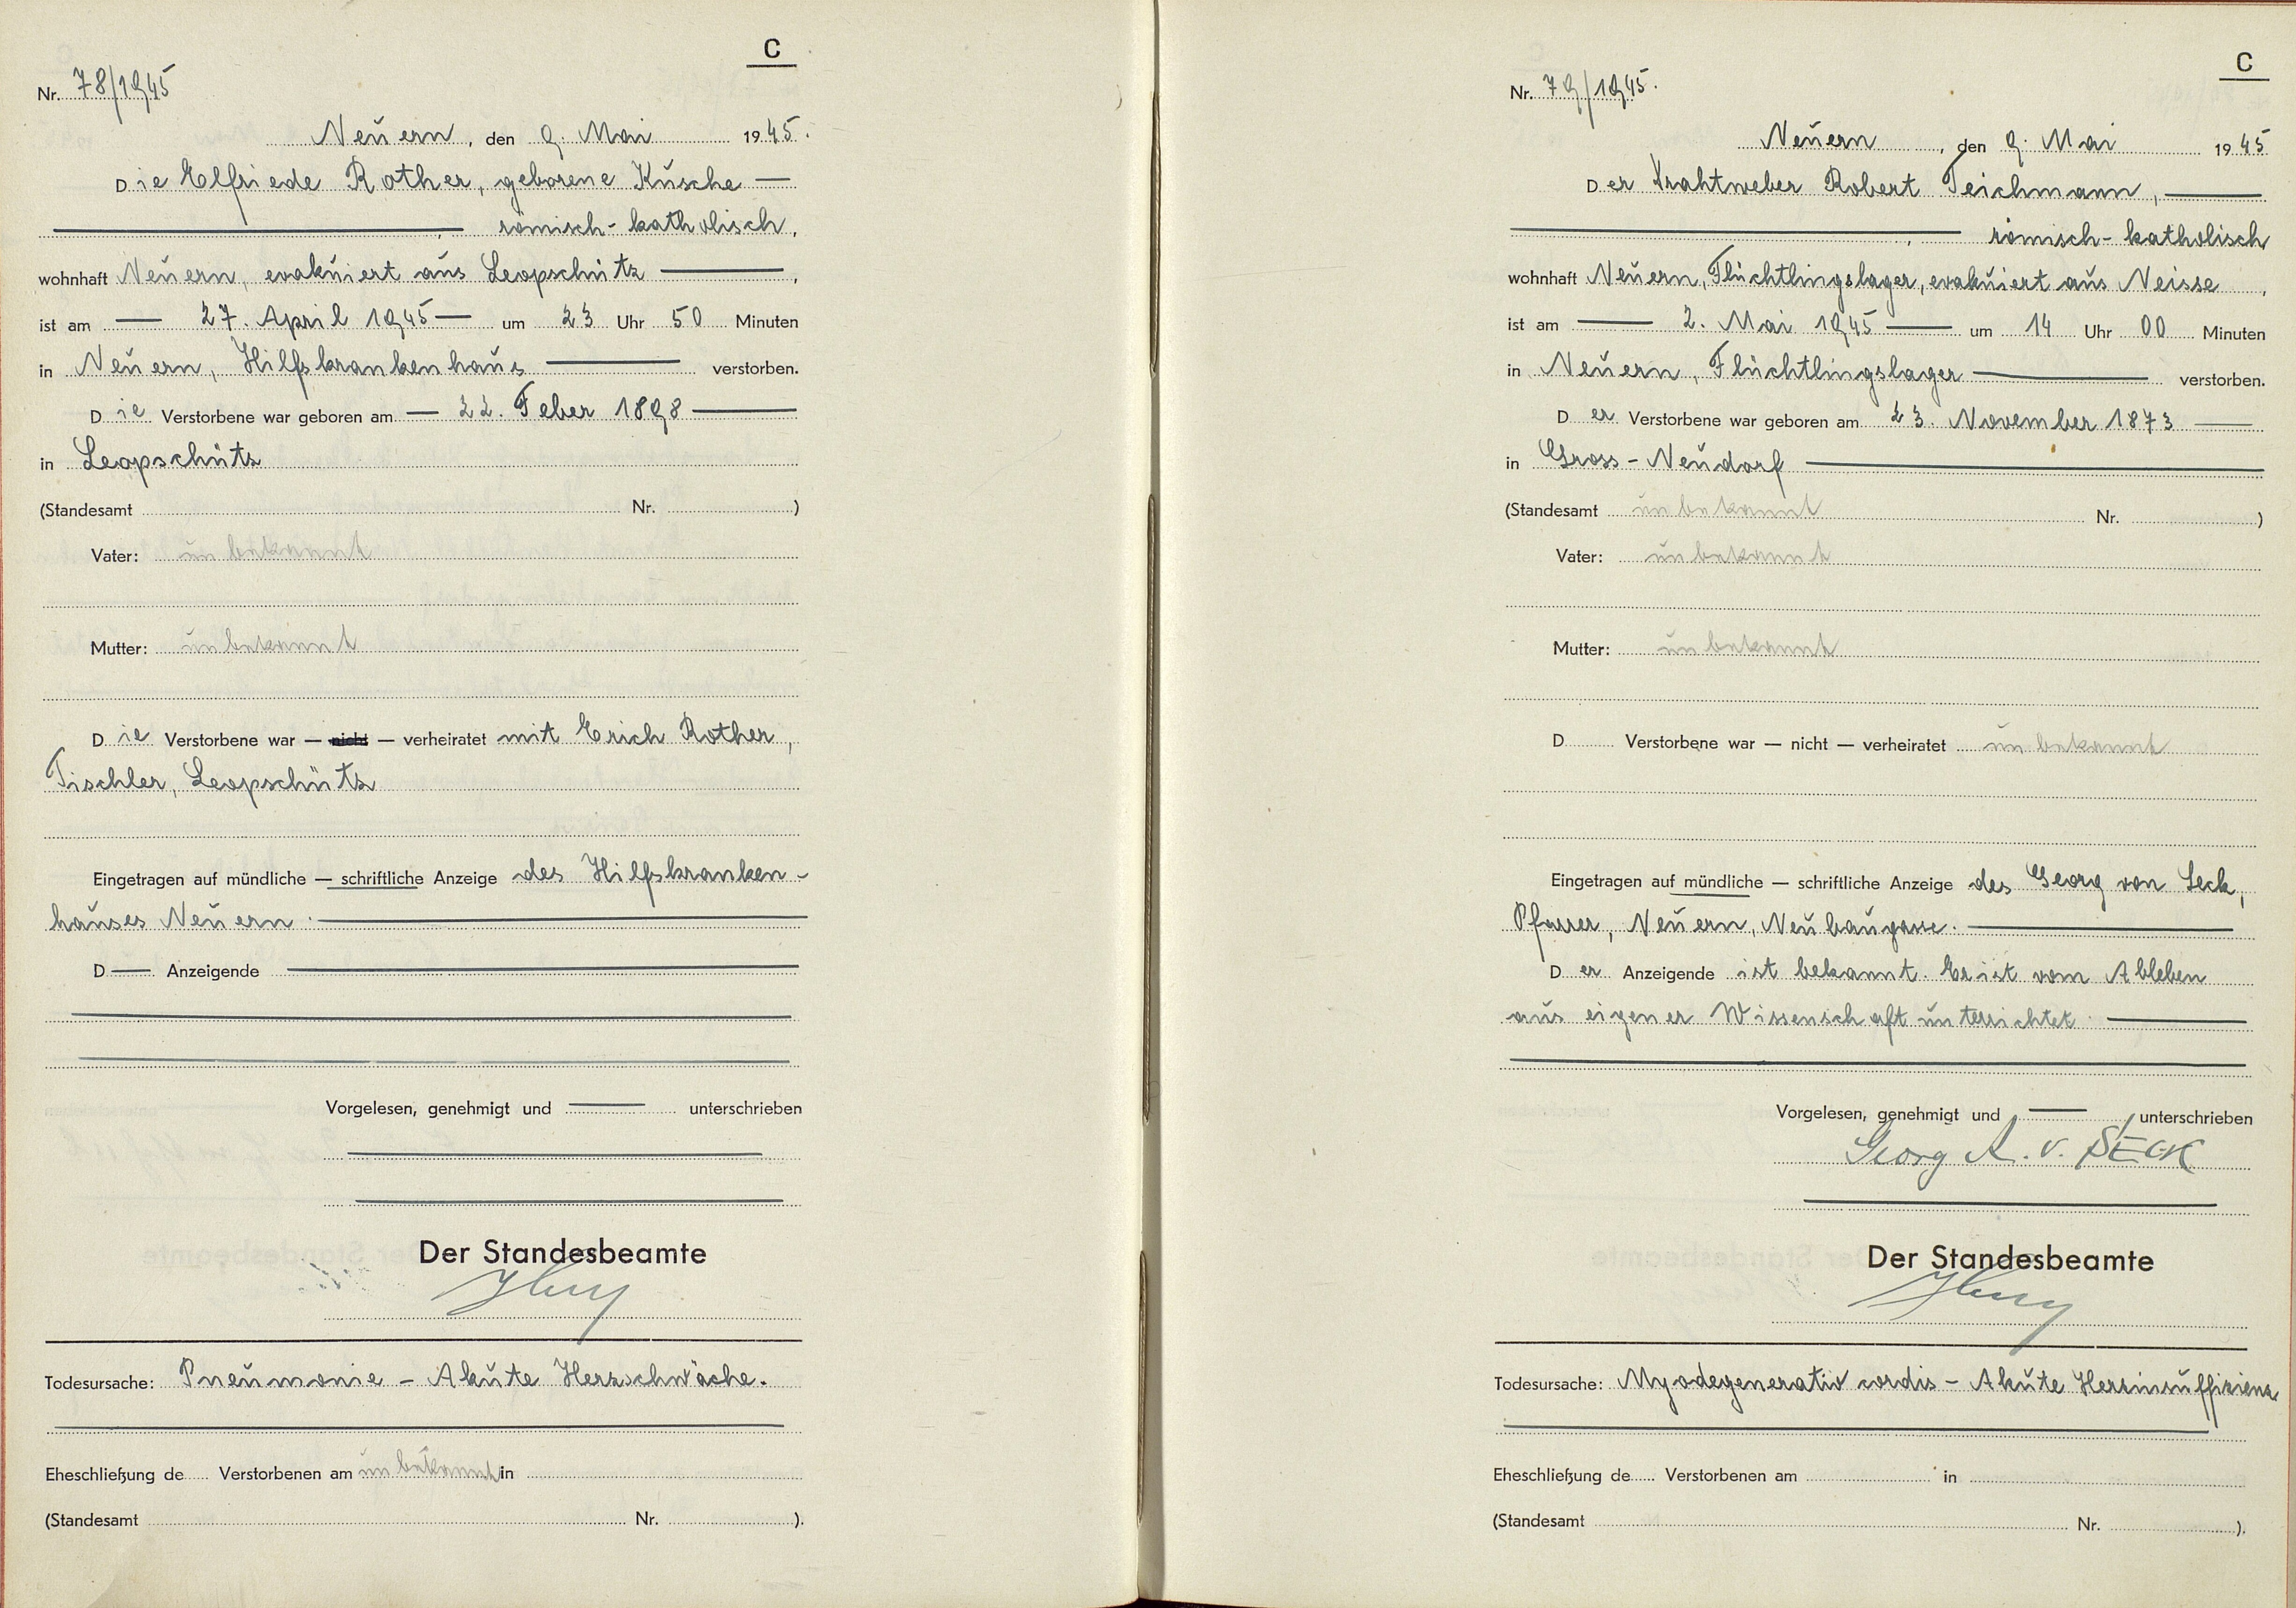 C
Nr. 78/1945
Neuern, den 9. Mai 1945.
Die Elfriede Rother, geborene Kusche —
— römisch-katholisch,
wohnhaft Neuern, evakuiert aus Leopschütz —,
ist am — 27. April 1945 — um 23 Uhr 50 Minuten
in Neuern, Hilfskrankenhaus — verstorben.
Die Verstorbene war geboren am — 22. Feber 1898 —
in Leopschütz
(Standesamt Nr. )
Vater: unbekannt
Mutter: unbekannt
Die Verstorbene war — nicht — verheiratet mit Erich Rother,
Tischler, Leopschütz
Eingetragen auf mündliche — schriftliche Anzeige des Hilfskranken-
hauses Neuern. —
D — Anzeigende —
Vorgelesen, genehmigt und — unterschrieben
Der Standesbeamte
Todesursache: Pneumonie – Akute Herzschwäche.
Eheschließung de Verstorbenen am unbekannt in
(Standesamt Nr. ).
C
Nr. 79/1945.
Neuern, den 9. Mai 1945
Der Robert Teichmann, —
— römisch-katholisch
wohnhaft Neuern, Flüchtlingslager, evakuiert aus Neisse,
ist am — 2. Mai 1945 — um 14 Uhr 00 Minuten
in Neuern, Flüchtlingslager — verstorben.
Der Verstorbene war geboren am 23. November 1873 —
in Gross-Neudorf —
(Standesamt unbekannt Nr. )
Vater: unbekannt
Mutter: unbekannt
D Verstorbene war — nicht — verheiratet unbekannt
Eingetragen auf mündliche — schriftliche Anzeige des Georg von Seck,
Pfarrer, Neuern, Neubaugasse. —
Der Anzeigende ist bekannt. Er ist vom Ableben
aus eigener Wissenschaft unterrichtet. —
Vorgelesen, genehmigt und — unterschrieben
Georg A. v. SECK
Der Standesbeamte
Todesursache: Myodegenerativ cordis – Akute Herzinsuffizienz
Eheschließung de Verstorbenen am in
(Standesamt Nr. ).